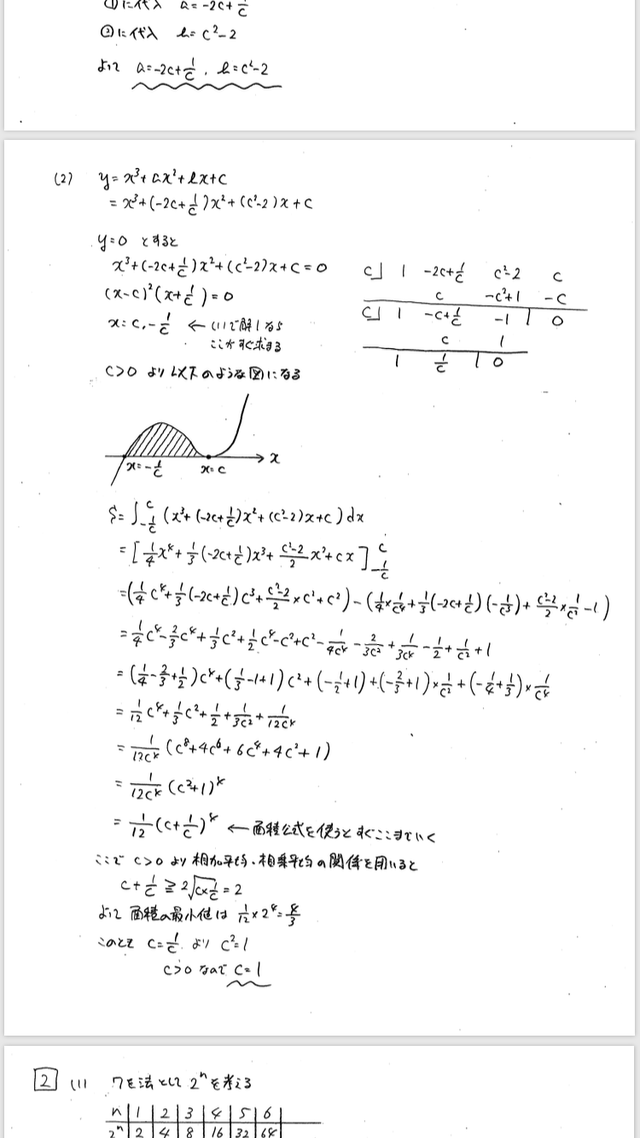 ①に代入 a=-2c+1/c
②に代入 b=c²-2
よって a=-2c+1/c, b=c²-2
(2) y=x³+ax²+bx+c
=x³+(-2c+1/c)x²+(c²-2)x+c
y=0 とすると
x³+(-2c+1/c)x²+(c²-2)x+c=0
(x-c)²(x+1/c)=0
x=c, -1/c ←(1)で解
ここがすぐ求まる
c| 1 -2c+1/c c²-2 c
c -c²+1 -c
c| 1 -c+1/c -1 | 0
c 1
1 1/c | 0
c>0 より以下のような図になる
x=-1/c x=c x
S=∫_{-1/c}^{c} (x³+(-2c+1/c)x²+(c²-2)x+c)dx
=[1/4x⁴+1/3(-2c+1/c)x³+(c²-2)/2 x²+cx]_{-1/c}^{c}
=(1/4c⁴+1/3(-2c+1/c)c³+(c²-2)/2×c²+c²)-(1/4×1/c⁴+1/3(-2c+1/c)(-1/c³)+(c²-2)/2×1/c²-1)
=1/4c⁴-2/3c⁴+1/3c²+1/2c⁴-c²+c²-1/4c⁴-2/3c²+1/3c⁴-1/2+1/c²+1
=(1/4-2/3+1/2)c⁴+(1/3-1+1)c²+(-1/2+1)+(-2/3+1)×1/c²+(-1/4+1/3)×1/c⁴
=1/12c⁴+1/3c²+1/2+1/3c²+1/12c⁴
=1/12c⁴(c⁸+4c⁶+6c⁴+4c²+1)
=1/12c⁴(c²+1)⁴
=1/12(c+1/c)⁴ ← 面積公式を使うとすぐここまでいく
ここで c>0 より 相加平均・相乗平均の関係を用いると
c+1/c≧2√(c×1/c)=2
よって 面積の最小値は 1/12×2⁴=4/3
このとき c=1/c より c²=1
c>0 なので c=1
2 (1) 7を法として 2ⁿを考える
n | 1 | 2 | 3 | 4 | 5 | 6 |
2ⁿ | 2 | 4 | 8 | 16 | 32 | 64 |